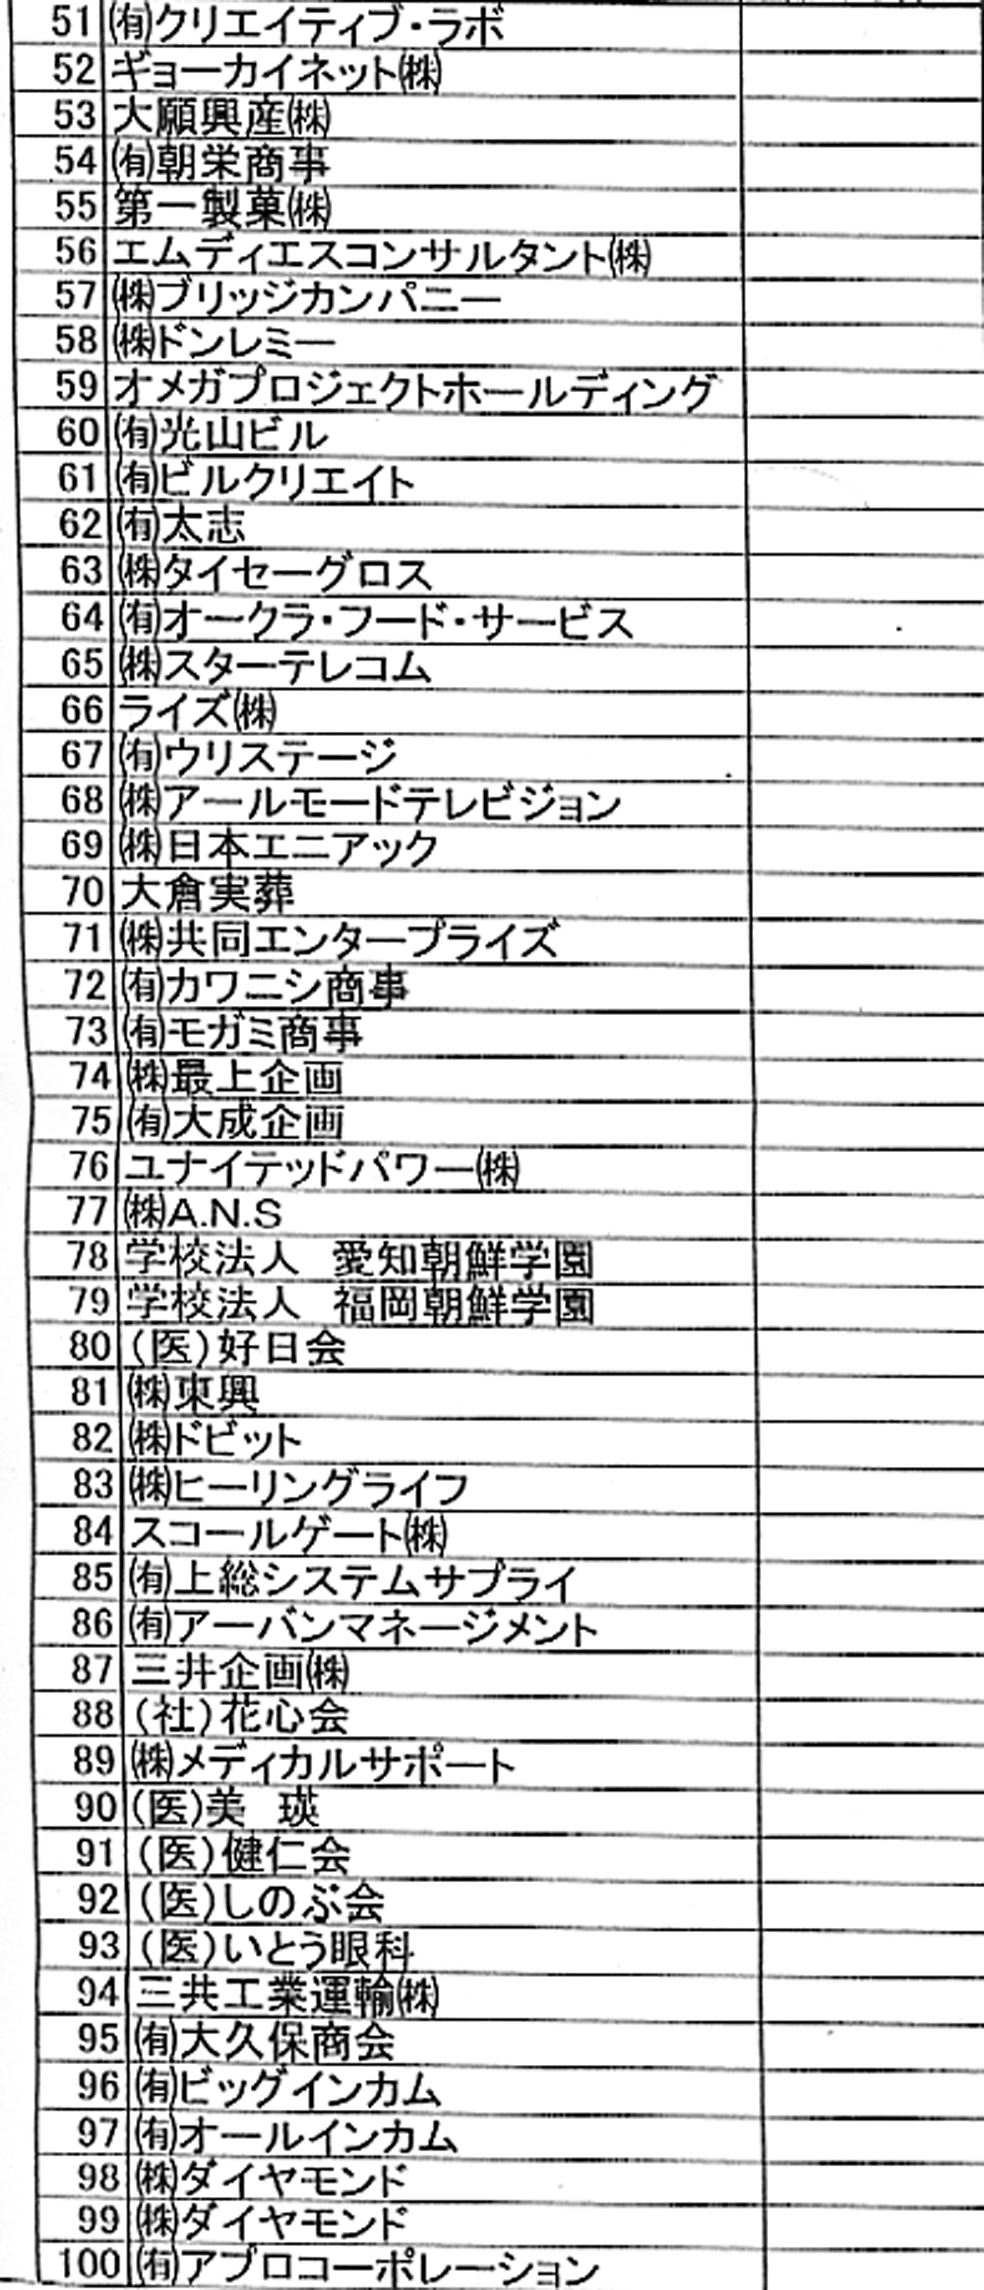 51 ㈲クリエイティブ・ラボ
52 ギョーカイネット㈱
53 大願興産㈱
54 ㈲朝栄商事
55 第一製菓㈱
56 エムディエスコンサルタント㈱
57 ㈱ブリッジカンパニー
58 ㈱ドンレミー
59 オメガプロジェクトホールディング
60 ㈲光山ビル
61 ㈲ビルクリエイト
62 ㈲太志
63 ㈱タイセーグロス
64 ㈲オークラ・フード・サービス
65 ㈱スターテレコム
66 ライズ㈱
67 ㈲ウリステージ
68 ㈱アールモードテレビジョン
69 ㈱日本エニアック
70 大倉実葬
71 ㈱共同エンタープライズ
72 ㈲カワニシ商事
73 ㈲モガミ商事
74 ㈱最上企画
75 ㈲大成企画
76 ユナイテッドパワー㈱
77 ㈱A.N.S
78 学校法人　愛知朝鮮学園
79 学校法人　福岡朝鮮学園
80 (医)好日会
81 ㈱東興
82 ㈱ドビット
83 ㈱ヒーリングライフ
84 スコールゲート㈱
85 ㈲上総システムサプライ
86 ㈲アーバンマネージメント
87 三井企画㈱
88 (社)花心会
89 ㈱メディカルサポート
90 (医)美　瑛
91 (医)健仁会
92 (医)しのぶ会
93 (医)いとう眼科
94 三共工業運輸㈱
95 ㈲大久保商会
96 ㈲ビッグインカム
97 ㈲オールインカム
98 ㈱ダイヤモンド
99 ㈱ダイヤモンド
100 ㈲アプロコーポレーション